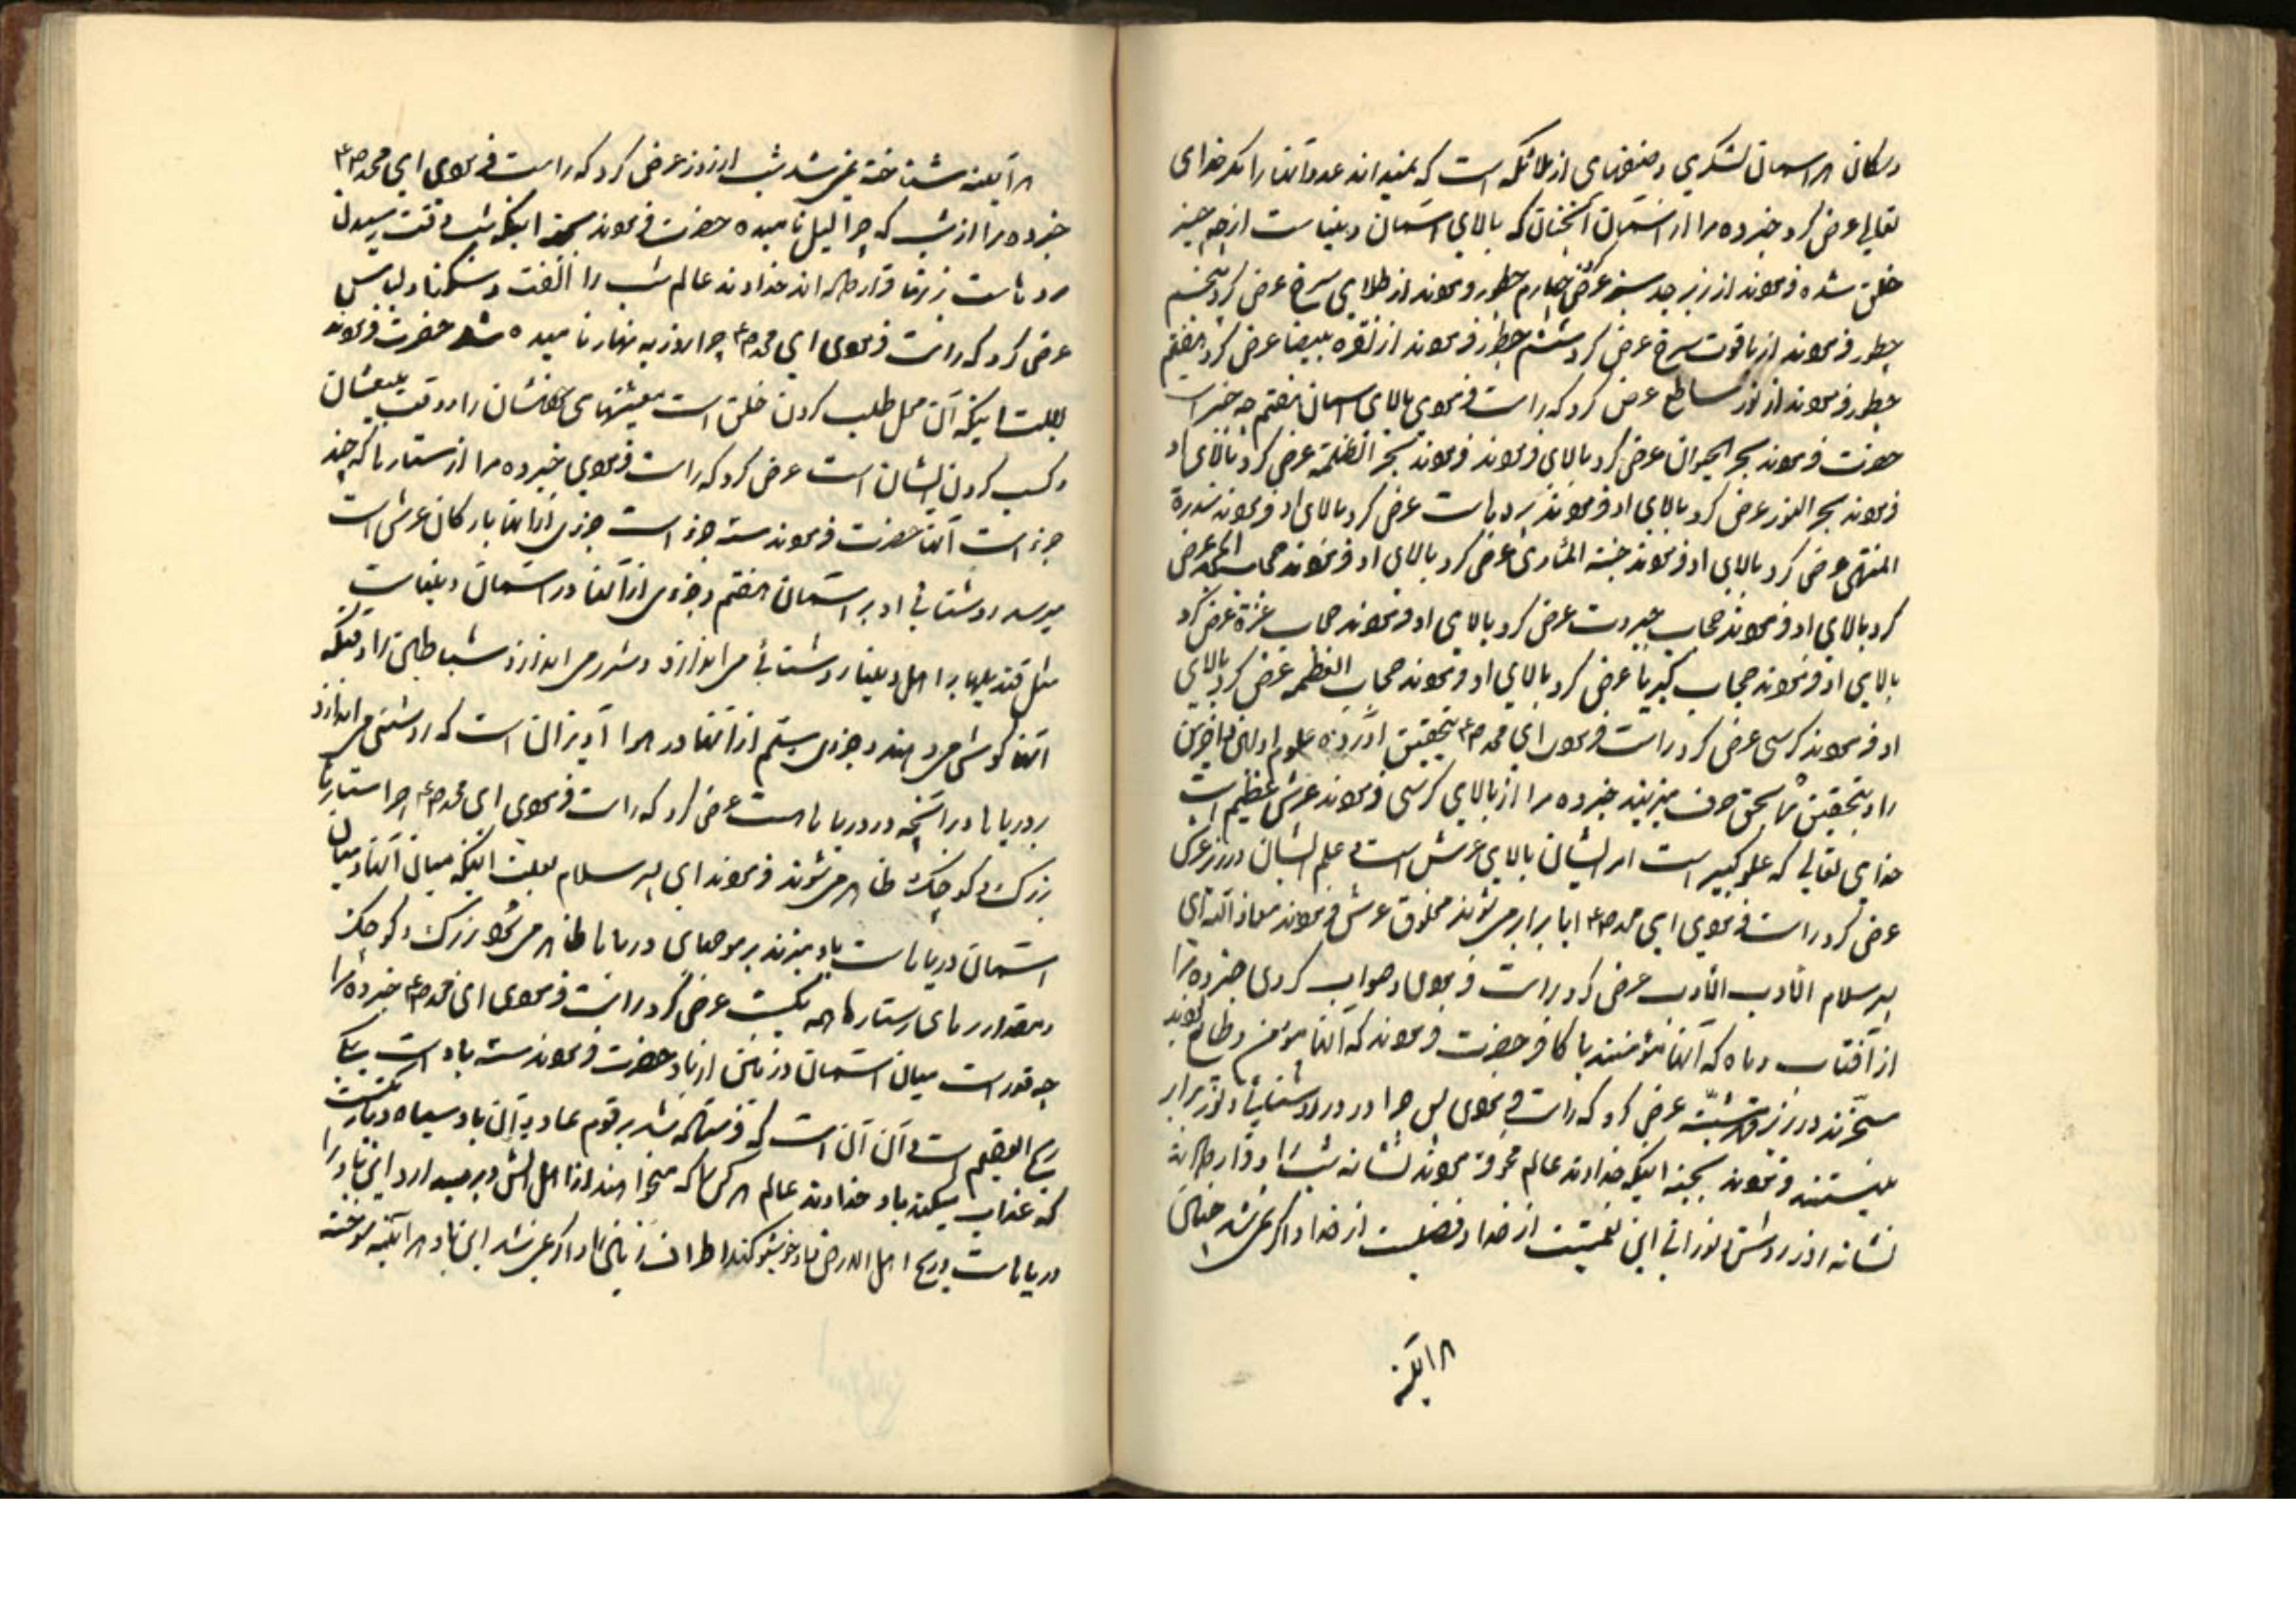 و سکان هر اسمان لشکری و صنفهای از ملائکه است که نمیداند عدد آنها را مکر خدای
تعالی عرض کرد خبر ده مرا از اسمان آنچنان که بالای اسمان دنیا است از چه چیز
خلق شده فرمودند از زبرجد سبز عرض کرد چهارم چطور فرمودند از طلای سرخ عرض کرد پنجم
چطور فرمودند از یاقوت سرخ عرض کرد ششم چطور فرمودند از نقره بیضا عرض کرد هفتم
چطور فرمودند از نور ساطع عرض کرد که راست فرمودی بالای اسمان هفتم چه چیز است
حضرت فرمودند بحر الحیوان عرض کرد بالای او فرمودند بحر الظلمة عرض کرد بالای او
فرمودند بحر النور عرض کرد بالای او فرمودند پرده هاست عرض کرد بالای او فرمودند سدرة
المنتهی عرض کرد بالای او فرمودند جنة المأوی عرض کرد بالای او فرمودند حجاب المجد عرض
کرد بالای او فرمودند حجاب جبروت عرض کرد بالای او فرمودند حجاب عزة عرض کرد
بالای او فرمودند حجاب کبریا عرض کرد بالای او فرمودند حجاب العظمه عرض کرد بالای
او فرمودند کرسی عرض کرد راست فرمودی ای محمد صع بتحقیق آورده علوم اولین و اخرین
را و بتحقیق شما بحق حرف میزنید خبر ده مرا از بالای کرسی فرمودند عرش عظیم است
خدای تعالی که علو کبیر است امر ایشان بالای عرش است و علم ایشان در زیر عرش
عرض کرد راست فرمودی ای محمد صع ایا برابر می شوند مخلوق عرش فرمودند معاذ الله ای
پسر سلام الأدب الأدب عرض کرد راست فرمودی و صواب کردی خبر ده مرا
از آفتاب و ماه که آنها مؤمنند یا کافر حضرت فرمودند که آنها مؤمن و طایع بوده
مسخرند در زیر مشیّة عرض کرد که راست فرمودی پس چرا در روشنایی و نور برابر
نیستند فرمودند بجهة اینکه خداوند عالم محو فرمودند نشانه شب را و قرار داد
نشانه روز روشن نورانی این نعمتیست از خدا و فضیلت از خدا و اگر نمی شد چنین
هراینه
هرآینه شناخته نمی شد شب از روز عرض کرد که راست فرمودی ای محمد صع
خبر ده مرا از شب که چرا لیل نامیده حضرت فرمودند بجهة اینکه شب وقت رسیدن
مردهاست زنها قرار داده اند خداوند عالم شب را الفت و سکنا و لباس
عرض کرد که راست فرمودی ای محمد صع چرا روز به نهار نامیده شد حضرت فرمودند
بعلت اینکه آن محل طلب کردن خلق است معیشتهای خودشان را و وقت
و کسب کردن ایشان است عرض کرد که راست فرمودی خبر ده مرا از ستارها که چند
جزء است آنها حضرت فرمودند سه جزء است جزوی از آنها بارکان عرش است
میرسد روشنائی او بر اسمان هفتم و جزوی از آنها در اسمان دنیاست
مثل قندیلها بر اهل دنیا روشنائی می اندازد و شرر می اندازد شیاطین را وقتیکه
آنها گوش میدهند و جزوی سیّم از آنها در هوا آویزان است که روشنی می اندازد
بر دریاها و بر آنچه در دریاهاست عرض کرد که راست فرمودی ای محمد صع چرا ستارها
بزرگ و کوچک ظاهر می شوند فرمودند ای پسر سلام بعلت اینکه میان آنها و میان
اسمان دریاهاست باد میزند بر موجهای دریاها ظاهر می شود بزرگ و کوچک
و مقدار ستارها همه یکیست عرض کرد راست فرمودی ای محمد صع خبر ده مرا
چه قدر است میان اسمان و زمین از باد حضرت فرمودند سه باد است یکی
ریح العقیم است و آن آن است که فرستاده شد بر قوم عاد و آن باد سیاه و تاریکیست
که عذاب میکند باد خداوند عالم هر کس را که میخواهد از اهل آتش و میدارد این باد را
دریاهاست و ریح اهل الارض باد خوشبو کند اطراف زمین را و اگر نمی شد این باد هرآینه سوخته